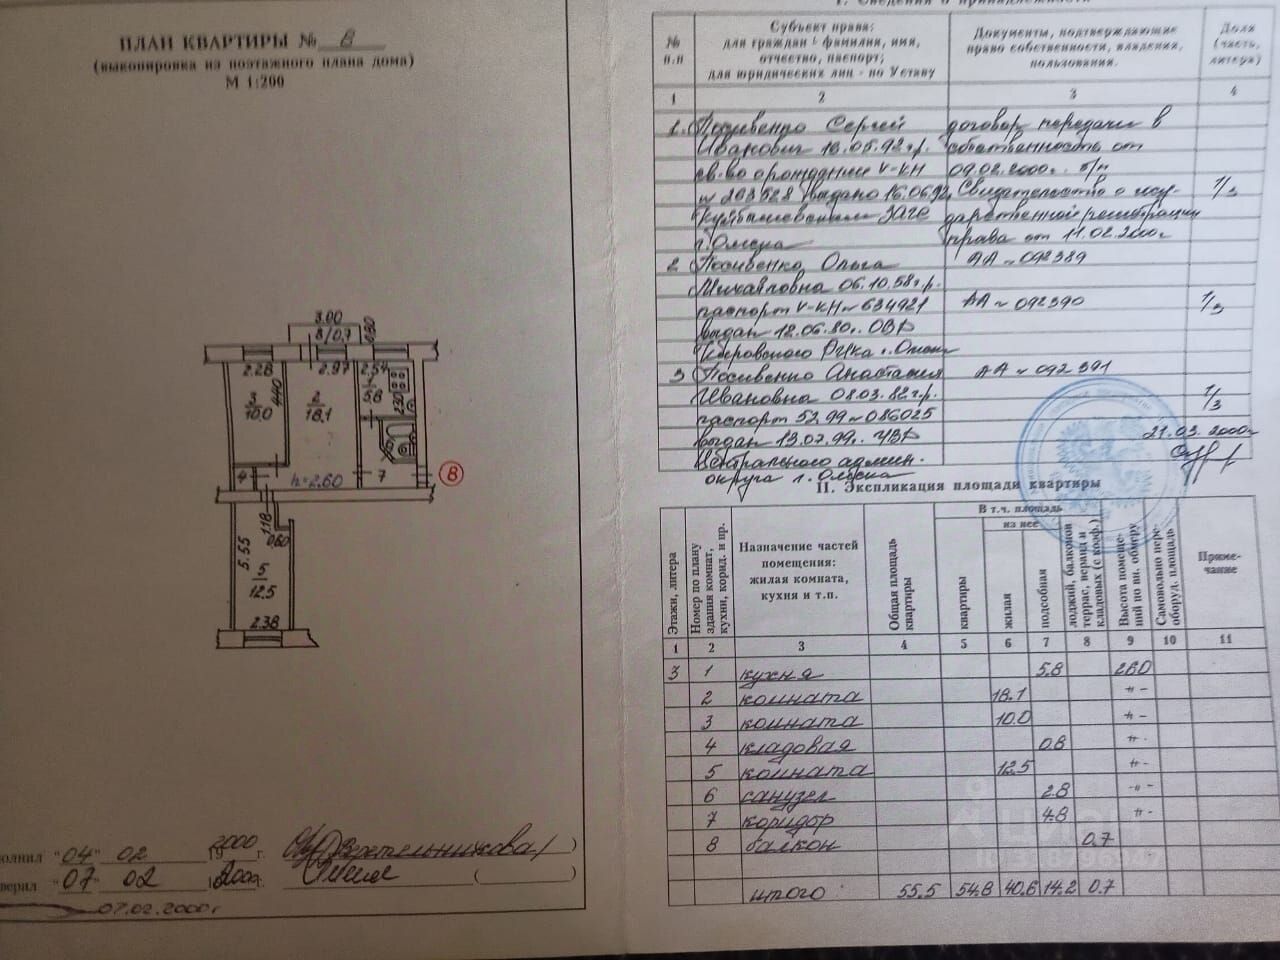 ПЛАН КВАРТИРЫ № 8
(выкопировка из поэтажного плана дома)
М 1:200
3.00
8/0,7
0,30
2.28
2.97
2.54
4.40
3
10.0
2
18.1
1
5.8
2.30
6
4
h=2.60
7
8
1.18
0.60
5.55
5
12.5
2.38
"04" 02 2000 г.
"07" 02 2000 г.
07.02.2000 г
№ п.п
Субъект права:
для граждан - фамилия, имя,
отчество, паспорт;
для юридических лиц - по Уставу
Документы, подтверждающие
право собственности, владения,
пользования.
Доля
(часть,
литера)
1 2 3 4
1. Посивенко Сергей договор передачи в
Иванович 18.05.92 г.р. собственность от
св-во о рождении V-КН 09.02.2000г. б/н
№ 263528 выдано 16.06.92 Свидетельство о госу- 1/3
Куйбышевским ЗАГС дарственной регистрации
г. Омска права от 11.02.2000г
2 Посивенко Ольга АА № 092389
Михайловна 06.10.58 г.р.
паспорт V-КН № 634921 АА № 092390 1/3
выдан 12.06.80г. ОВД
Кировского РИКа г. Омска
3 Посивенко Анастасия АА № 092391
Ивановна 08.03.82 г.р. 1/3
паспорт 52.99 № 086025
выдан 13.07.99г. УВД 21.03.2000г
Центрального админ.
округа г. Омска
II. Экспликация площади квартиры
Этажи, литера
Номер по плану здания комнат, кухни, корид. и пр.
Назначение частей
помещения:
жилая комната,
кухня и т.п.
Общая площадь квартиры
В т.ч. площадь
квартиры
из нее
жилая
подсобная
лоджий, балконов террас, веранд и кладовых (с коэф.)
Высота помещений по вн. обмеру
Самовольно переоборуд. площадь
Приме-
чание
1 2 3 4 5 6 7 8 9 10 11
3 1 кухня 5.8 260
2 комната 18.1 -"-
3 комната 10.0 -"-
4 кладовая 0.8 -"-
5 комната 12.5 -"-
6 санузел 2.8 -"-
7 коридор 4.8 -"-
8 балкон 0.7
итого 55.5 54.8 40.6 14.2 0.7